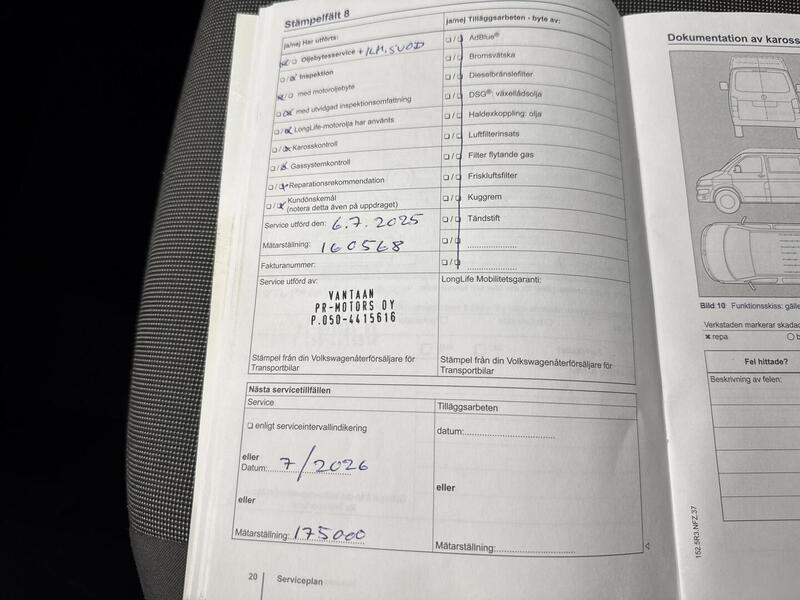 Stämpelfält 8
ja/nej Har utförts:
Oljebytesservice + ILM. SUOD
Inspektion
med motoroljebyte
med utvidgad inspektionsomfattning
LongLife-motorolja har använts
Karosskontroll
Gassystemkontroll
Reparationsrekommendation
Kundönskemål
(notera detta även på uppdraget)
Service utförd den: 6.7.2025
Mätarställning: 160568
Fakturanummer:
Service utförd av:
VANTAAN
PR-MOTORS OY
P.050-4415616
Stämpel från din Volkswagenåterförsäljare för
Transportbilar
ja/nej Tilläggsarbeten - byte av:
AdBlue®
Bromsvätska
Dieselbränslefilter
DSG®: växellådsolja
Haldexkoppling: olja
Luftfilterinsats
Filter flytande gas
Friskluftsfilter
Kuggrem
Tändstift
LongLife Mobilitetsgaranti:
Stämpel från din Volkswagenåterförsäljare för
Transportbilar
Nästa servicetillfällen
Service
enligt serviceintervallindikering
eller
Datum: 7/2026
eller
Mätarställning: 175000
Tilläggsarbeten
datum:
eller
Mätarställning:
20 Serviceplan
Dokumentation av kaross
Bild 10 Funktionsskiss: gälle
Verkstaden markerar skadad
repa
Fel hittade?
Beskrivning av felen:
152.5R3.NFZ.37